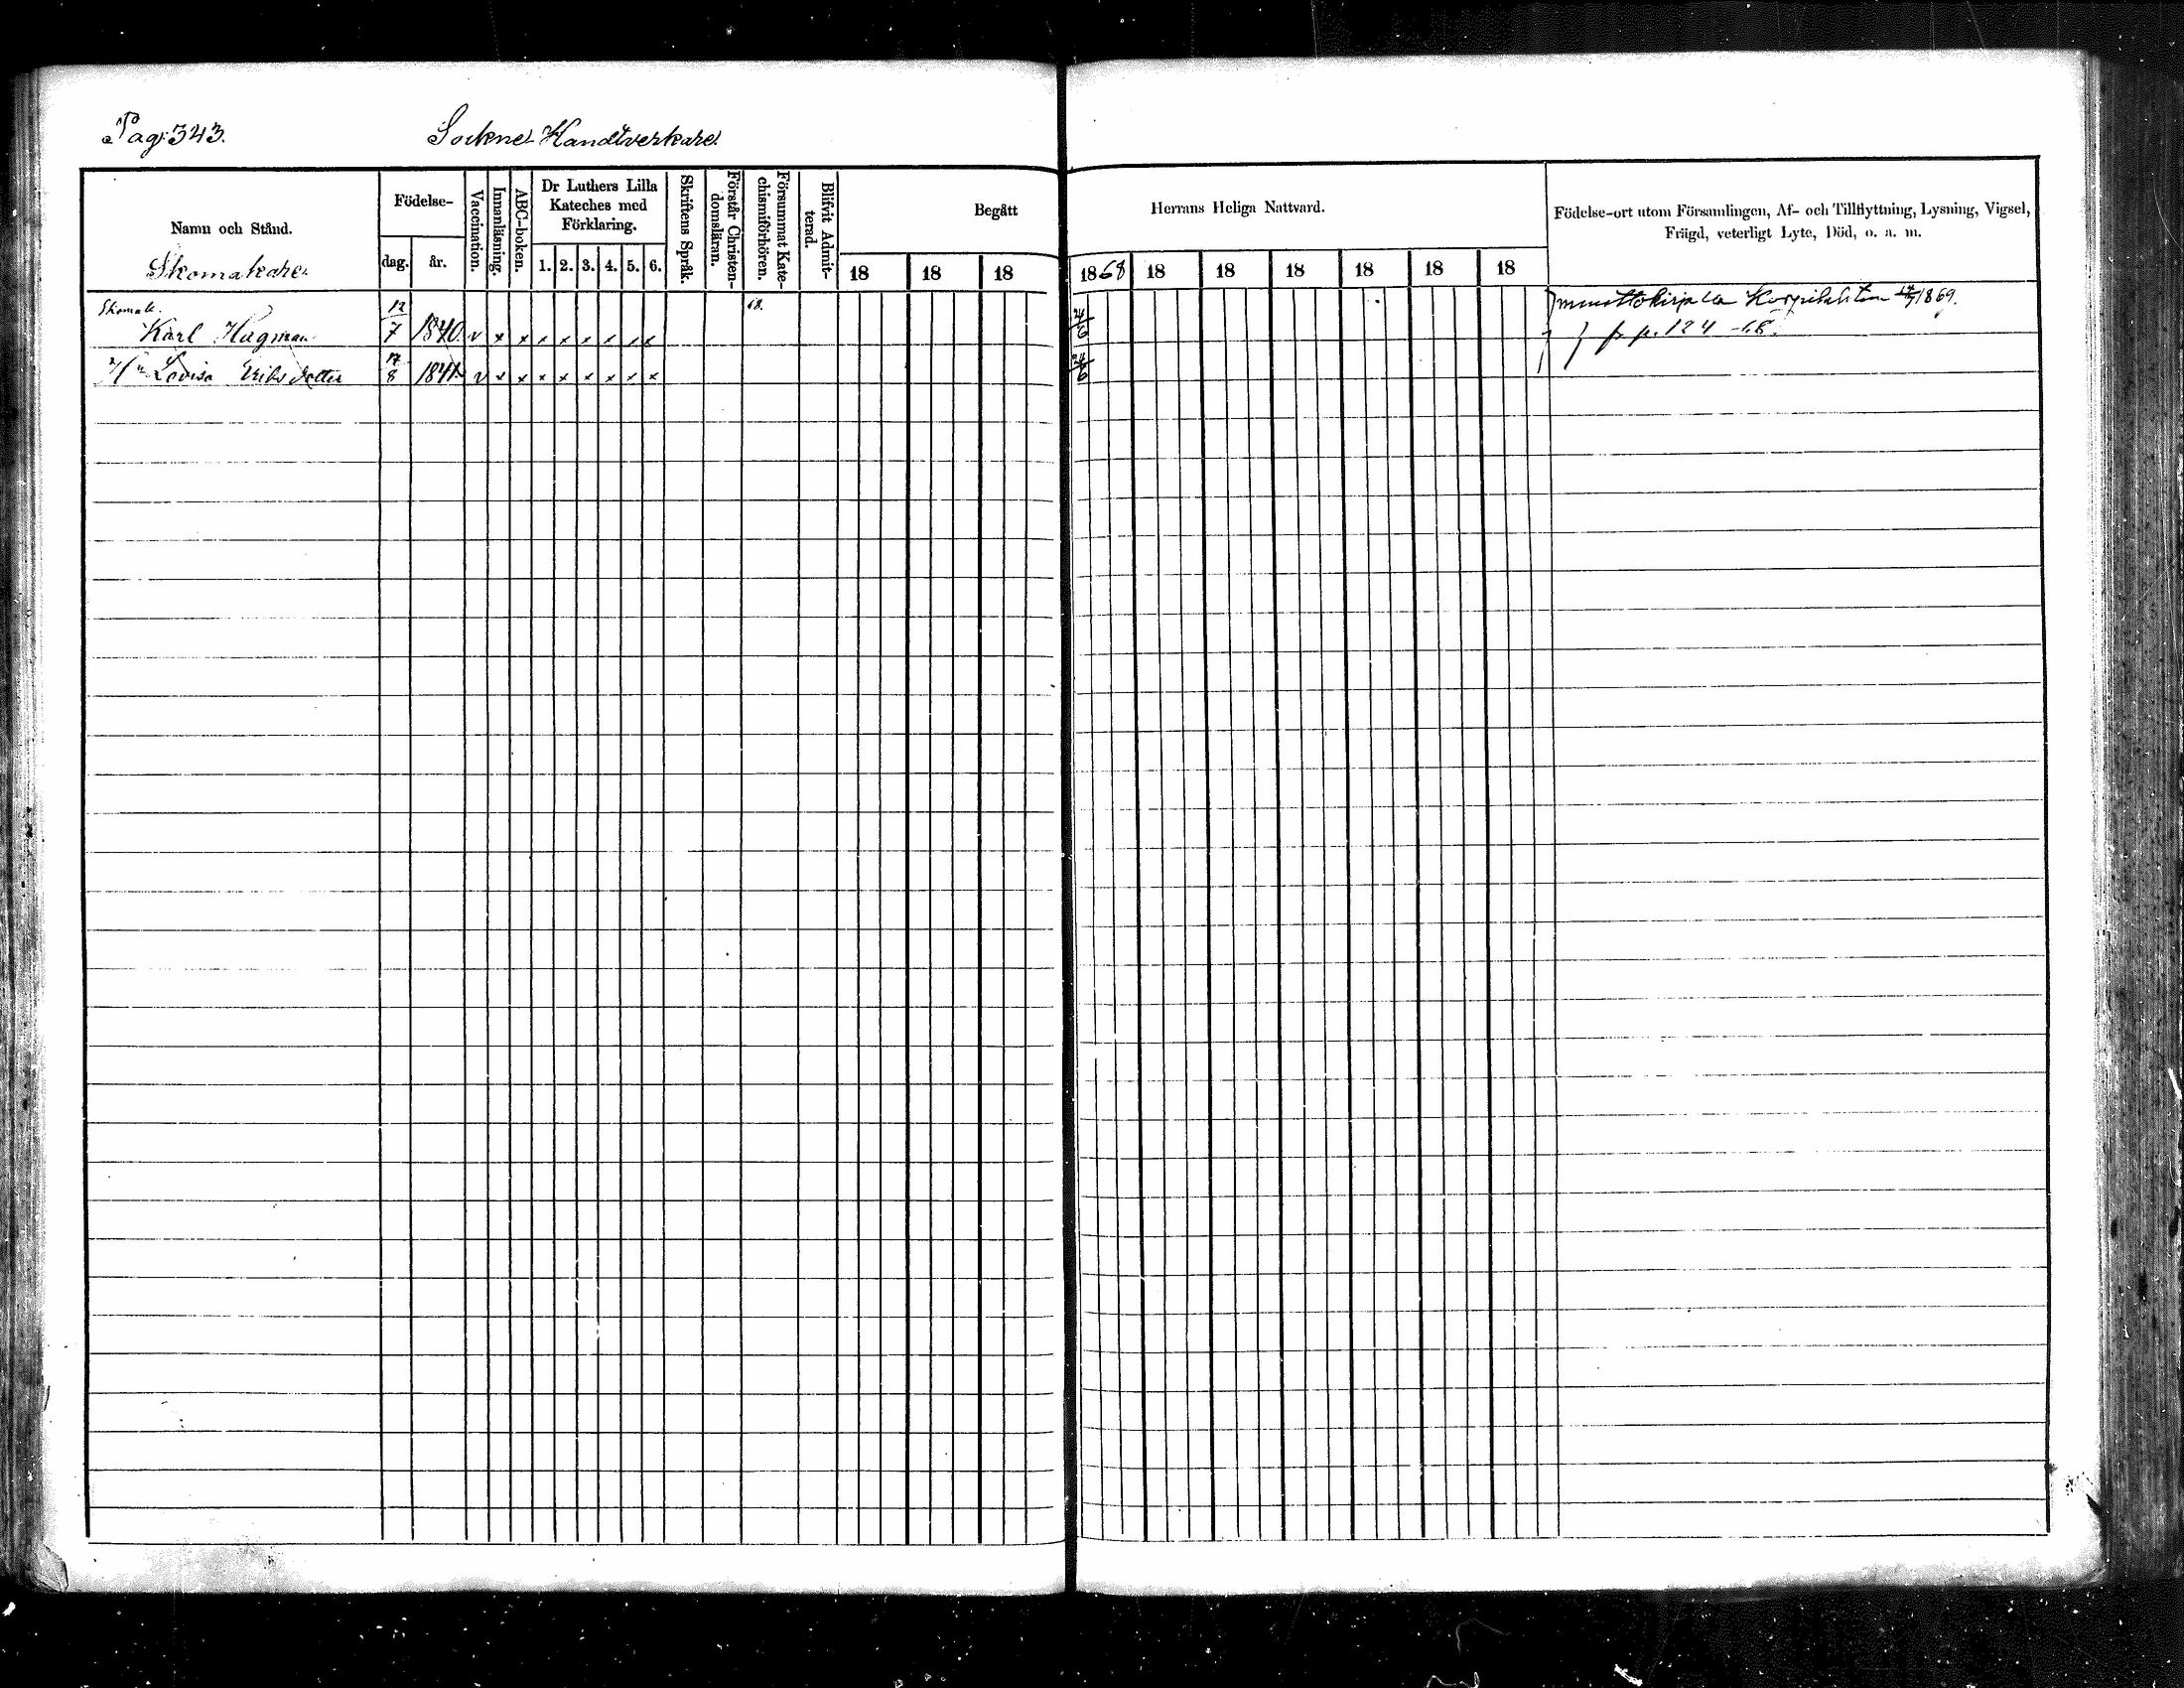 Pag: 343.
Sockne Handtverkare
Namn och Stånd.
Skomakare
Födelse-
dag.
år.
Vaccination.
Innanläsning.
ABC-boken.
Dr Luthers Lilla
Kateches med
Förklaring.
1. 2. 3. 4. 5. 6.
Skriftens Språk.
Förstår Christen-
domsläran.
Försummat Kate-
chismiförhören.
Blifvit Admit-
terad.
Begått
18 18 18
Herrans Heliga Nattvard.
1868 18 18 18 18 18 18
Födelse-ort utom Församlingen, Af- och Tillflyttning, Lysning, Vigsel,
Frägd, veterligt Lyte, Död, o. a. m.
Skomak. 12 68. muuttokirja 1869.
Karl Hagman 7 1840 v x x x x x x x x 24/6 fr p. 124 -68.
H:u Lovisa Eriksdotter 17/8 1841 v x x x x x x x x 24/6